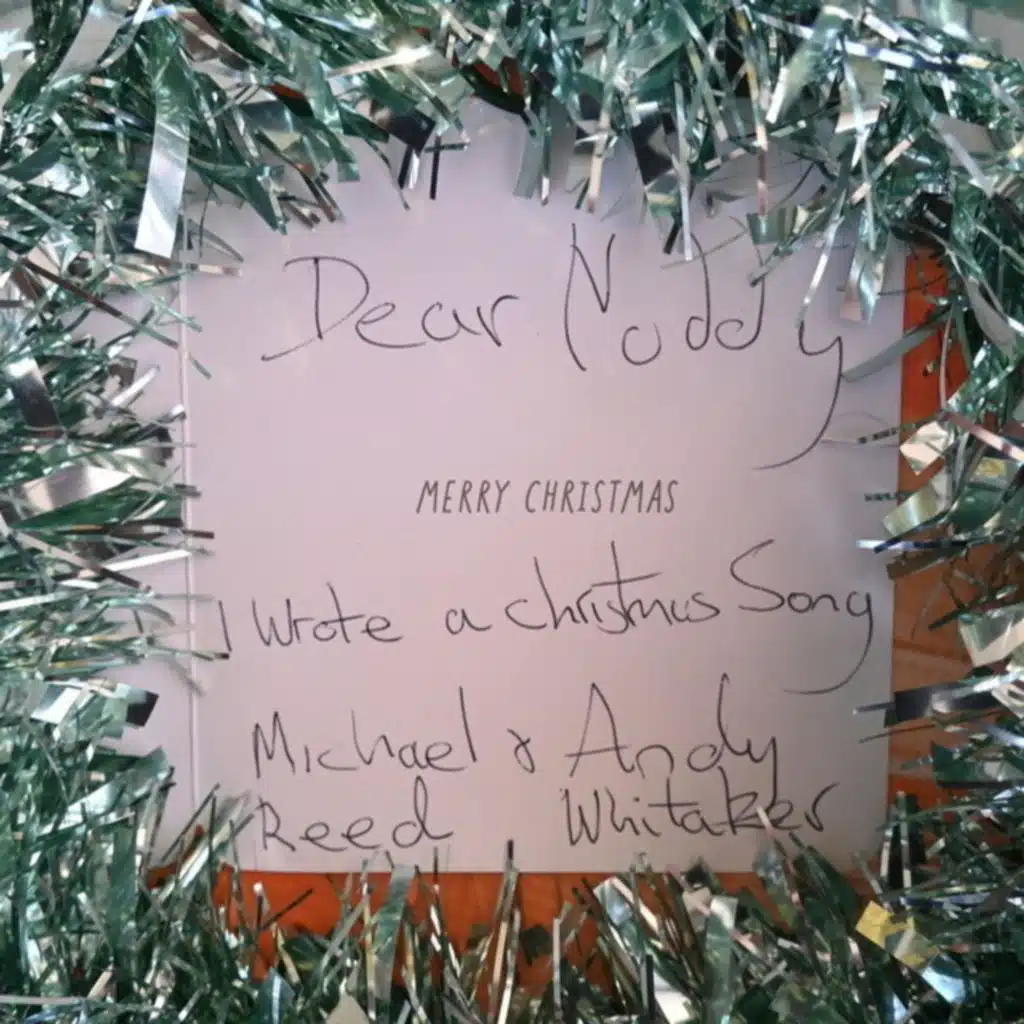 Dear Noddy
MERRY CHRISTMAS
I Wrote a christmas Song
Michael & Andy
Reed Whitaker